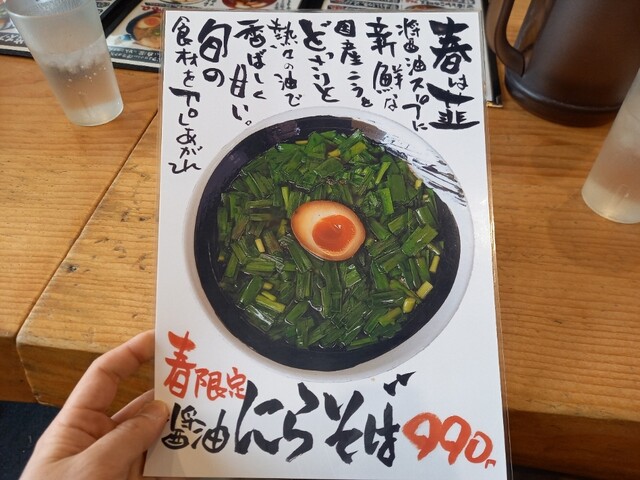 春は韮
醤油スープに
新鮮な
国産ニラを
どさりと
熱々の油で
香ばしく甘い。
旬の
食材を召しあがれ
春限定
醤油にらそば 990円